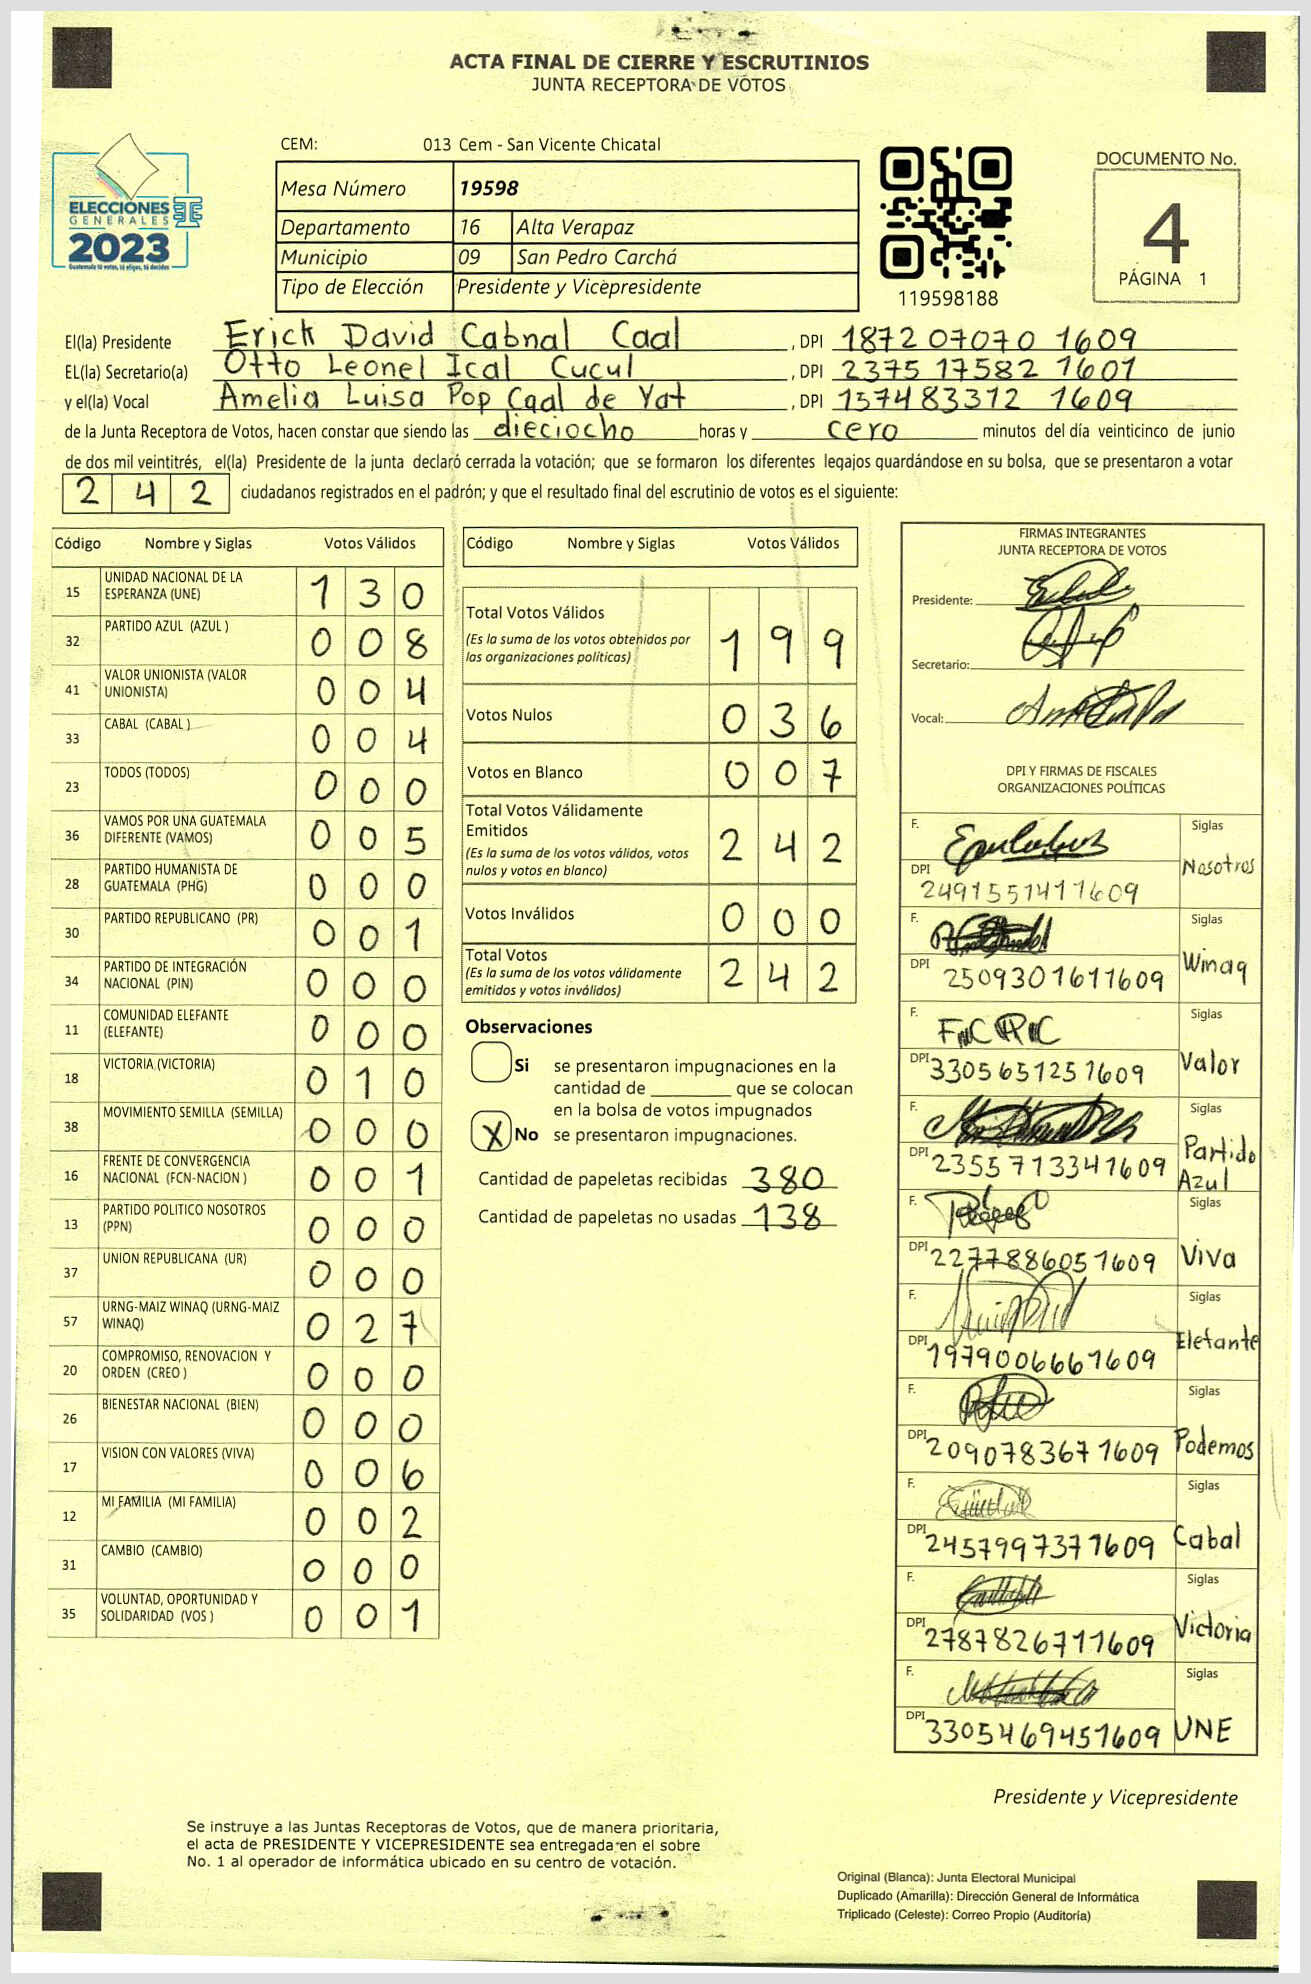 ACTA FINAL DE CIERRE Y ESCRUTINIOS
JUNTA RECEPTORA DE VOTOS
CEM: 013 Cem - San Vicente Chicatal
ELECCIONES
GENERALES
2023
Guatemala tú votas, tú eliges, tú decides
Mesa Número 19598
Departamento 16 Alta Verapaz
Municipio 09 San Pedro Carchá
Tipo de Elección Presidente y Vicepresidente
119598188
DOCUMENTO No.
4
PÁGINA 1
El(la) Presidente Erick David Cabnal Caal , DPI 1872 07070 1609
EL(la) Secretario(a) Otto Leonel Ical Cucul , DPI 2375 17582 1601
y el(la) Vocal Amelia Luisa Pop Caal de Yat , DPI 1574 83312 1609
de la Junta Receptora de Votos, hacen constar que siendo las dieciocho horas y cero minutos del día veinticinco de junio
de dos mil veintitrés, el(la) Presidente de la junta declaró cerrada la votación; que se formaron los diferentes legajos quardándose en su bolsa, que se presentaron a votar
2 4 2 ciudadanos registrados en el padrón; y que el resultado final del escrutinio de votos es el siguiente:
Código Nombre y Siglas Votos Válidos
15 UNIDAD NACIONAL DE LA ESPERANZA (UNE) 1 3 0
32 PARTIDO AZUL (AZUL ) 0 0 8
41 VALOR UNIONISTA (VALOR UNIONISTA) 0 0 4
33 CABAL (CABAL ) 0 0 4
23 TODOS (TODOS) 0 0 0
36 VAMOS POR UNA GUATEMALA DIFERENTE (VAMOS) 0 0 5
28 PARTIDO HUMANISTA DE GUATEMALA (PHG) 0 0 0
30 PARTIDO REPUBLICANO (PR) 0 0 1
34 PARTIDO DE INTEGRACIÓN NACIONAL (PIN) 0 0 0
11 COMUNIDAD ELEFANTE (ELEFANTE) 0 0 0
18 VICTORIA (VICTORIA) 0 1 0
38 MOVIMIENTO SEMILLA (SEMILLA) 0 0 0
16 FRENTE DE CONVERGENCIA NACIONAL (FCN-NACION ) 0 0 1
13 PARTIDO POLITICO NOSOTROS (PPN) 0 0 0
37 UNION REPUBLICANA (UR) 0 0 0
57 URNG-MAIZ WINAQ (URNG-MAIZ WINAQ) 0 2 7
20 COMPROMISO, RENOVACION Y ORDEN (CREO ) 0 0 0
26 BIENESTAR NACIONAL (BIEN) 0 0 0
17 VISION CON VALORES (VIVA) 0 0 6
12 MI FAMILIA (MI FAMILIA) 0 0 2
31 CAMBIO (CAMBIO) 0 0 0
35 VOLUNTAD, OPORTUNIDAD Y SOLIDARIDAD (VOS ) 0 0 1
Código Nombre y Siglas Votos Válidos
Total Votos Válidos 1 9 9
(Es la suma de los votos obtenidos por
las organizaciones políticas)
Votos Nulos 0 3 6
Votos en Blanco 0 0 7
Total Votos Válidamente
Emitidos 2 4 2
(Es la suma de los votos válidos, votos
nulos y votos en blanco)
Votos Inválidos 0 0 0
Total Votos 2 4 2
(Es la suma de los votos válidamente
emitidos y votos inválidos)
Observaciones
Si se presentaron impugnaciones en la
cantidad de ________ que se colocan
en la bolsa de votos impugnados
X No se presentaron impugnaciones.
Cantidad de papeletas recibidas 380
Cantidad de papeletas no usadas 138
FIRMAS INTEGRANTES
JUNTA RECEPTORA DE VOTOS
Presidente:
Secretario:
Vocal:
DPI Y FIRMAS DE FISCALES
ORGANIZACIONES POLÍTICAS
F. Siglas
Nosotros
DPI 2491551411609
F. Siglas
Winaq
DPI 2509301611609
F. Siglas
Valor
DPI 3305651251609
F. Siglas
Partido
Azul
DPI 2355713341609
F. Siglas
Viva
DPI 2277886051609
F. Siglas
Elefante
DPI 1979006661609
F. Siglas
Podemos
DPI 2090783671609
F. Siglas
Cabal
DPI 2457997371609
F. Siglas
Victoria
DPI 2787826711609
F. Siglas
UNE
DPI 3305469451609
Presidente y Vicepresidente
Se instruye a las Juntas Receptoras de Votos, que de manera prioritaria,
el acta de PRESIDENTE Y VICEPRESIDENTE sea entregada en el sobre
No. 1 al operador de informática ubicado en su centro de votación.
Original (Blanca): Junta Electoral Municipal
Duplicado (Amarilla): Dirección General de Informática
Triplicado (Celeste): Correo Propio (Auditoría)